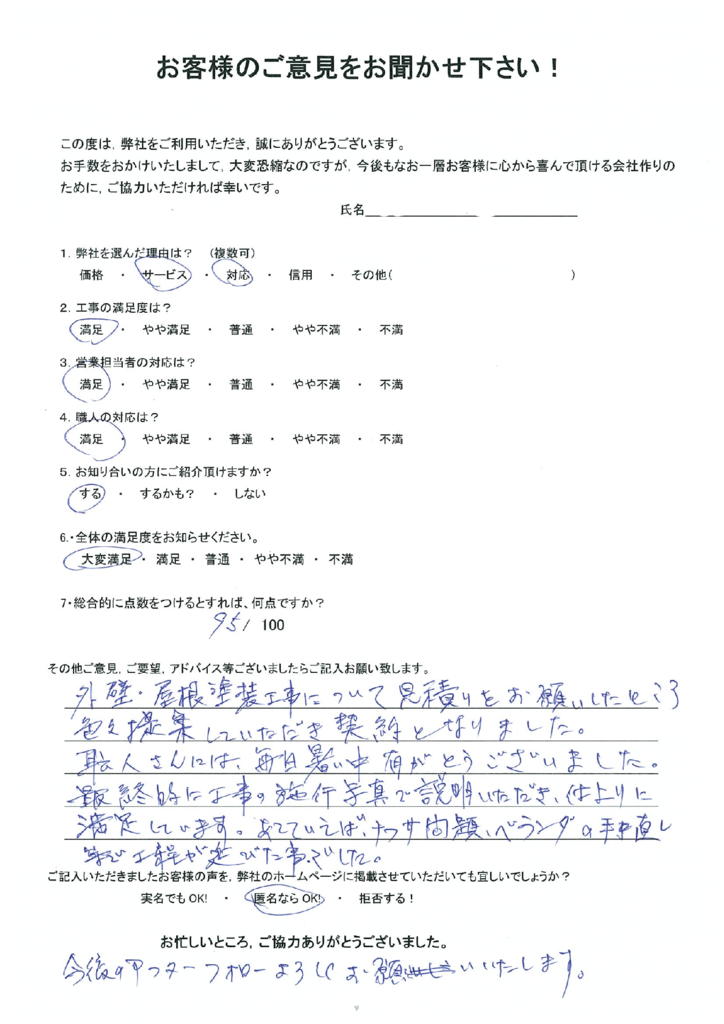 お客様のご意見をお聞かせ下さい！
この度は，弊社をご利用いただき，誠にありがとうございます。
お手数をおかけいたしまして，大変恐縮なのですが，今後もなお一層お客様に心から喜んで頂ける会社作りの
ために，ご協力いただければ幸いです。
氏名
1．弊社を選んだ理由は？　（複数可）
価格　・　サービス　・　対応　・　信用　・　その他(　　　　　　　　　　)
2．工事の満足度は？
満足　・　やや満足　・　普通　・　やや不満　・　不満
3．営業担当者の対応は？
満足　・　やや満足　・　普通　・　やや不満　・　不満
4．職人の対応は？
満足　・　やや満足　・　普通　・　やや不満　・　不満
5．お知り合いの方にご紹介頂けますか？
する　・　するかも？　・　しない
6.・全体の満足度をお知らせください。
大変満足　・　満足　・　普通　・　やや不満　・　不満
7・総合的に点数をつけるとすれば、何点ですか？
95/ 100
その他ご意見，ご要望，アドバイス等ございましたらご記入お願い致します。
外壁・屋根塗装工事について見積りをお願いしたところ
色々提案していただき契約となりました。
職人さんには、毎日暑い中有がとうございました。
最終的に工事の施行写真で説明いただき、何よりに
満足しています。あえていえば、ナッサ問題、ベランダの手直し
等で工程が延びた事でした。
ご記入いただきましたお客様の声を，弊社のホームページに掲載させていただいても宜しいでしょうか？
実名でもOK!　・　匿名ならOK!　・　拒否する！
お忙しいところ，ご協力ありがとうございました。
今後のアフターフォローよろしくお願いいたします。